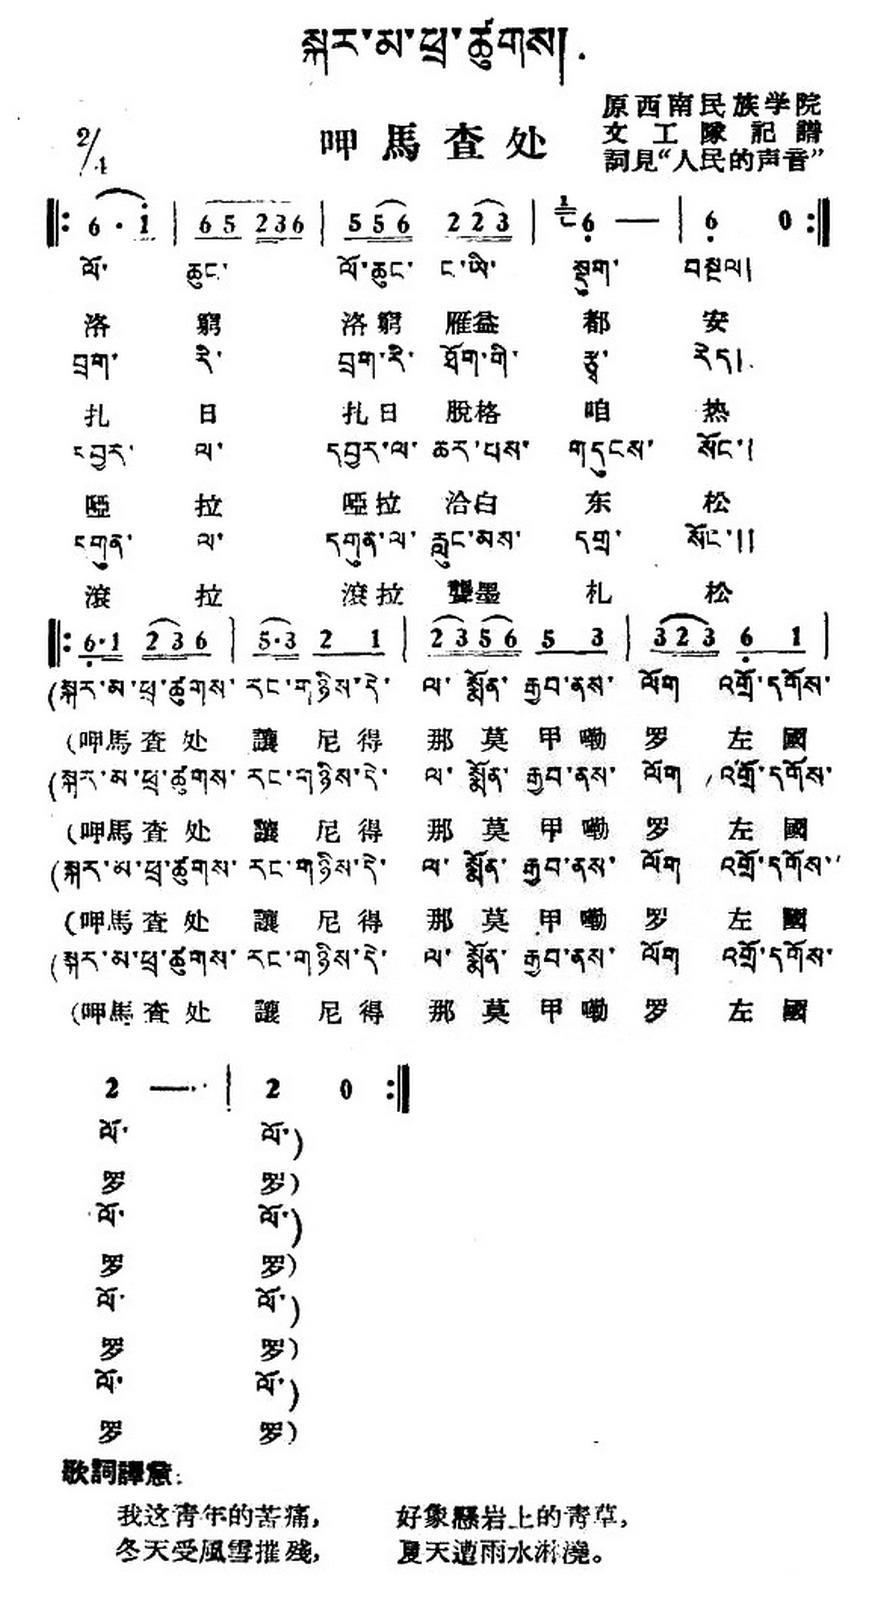 སྐར་མ་ཕྲ་ཚུགས།
2/4
呷馬査处
原西南民族学院
文工隊記譜
詞見“人民的声音”
6 · i | 65 236 | 556 223 | 6 — | 6 0
ལོ་ ཆུང་ ལོ་ཆུང་ ང་ཡི་ སྡུག་ བསྔལ།
洛 窮 洛窮 雁益 都 安
བྲག་ རི་ བྲག་རི་ ཐོག་གི་ རྩྭ་ རེད།
扎 日 扎日 脫格 咱 热
དབྱར་ ལ་ དབྱར་ལ་ ཆར་པས་ གདུངས་ སོང་།
啞 拉 啞拉 洽白 东 松
དགུན་ ལ་ དགུན་ལ་ རླུང་མས་ དགྲ་ སོང་།།
滾 拉 滾拉 龔墨 札 松
6·1 236 | 5·3 2 1 | 23 56 5 3 | 323 6 1
(སྐར་མ་ཕྲ་ཚུགས་ རང་གཉིས་དེ་ ལ་ སྨོན་ རྒྱབ་ནས་ ལོག འགྲོ་དགོས་
(呷馬査处 讓 尼得 那 莫 甲嘞 罗 左 國
(སྐར་མ་ཕྲ་ཚུགས་ རང་གཉིས་དེ་ ལ་ སྨོན་ རྒྱབ་ནས་ ལོག འགྲོ་དགོས་
(呷馬査处 讓 尼得 那 莫 甲嘞 罗 左 國
(སྐར་མ་ཕྲ་ཚུགས་ རང་གཉིས་དེ་ ལ་ སྨོན་ རྒྱབ་ནས་ ལོག འགྲོ་དགོས་
(呷馬査处 讓 尼得 那 莫 甲嘞 罗 左 國
(སྐར་མ་ཕྲ་ཚུགས་ རང་གཉིས་དེ་ ལ་ སྨོན་ རྒྱབ་ནས་ ལོག འགྲོ་དགོས་
(呷馬査处 讓 尼得 那 莫 甲嘞 罗 左 國
2 — | 2 0
ལོ་ ལོ་)
罗 罗)
ལོ་ ལོ་)
罗 罗)
ལོ་ ལོ་)
罗 罗)
ལོ་ ལོ་)
罗 罗)
歌詞譯意:
我这青年的苦痛, 好象懸岩上的青草,
冬天受風雪摧殘, 夏天遭雨水淋澆。